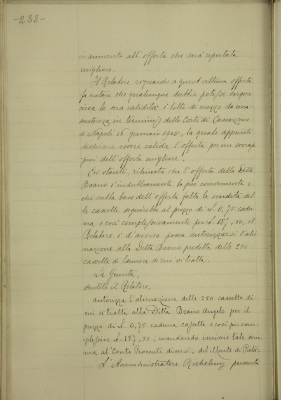 -232-
in aumento all'offerta che sarà reputata
migliore.
Il Relatore, riguardo a quest'ultima offerta
fa notare che qualunque dubbio potesse sorgere
circa la sua validità, è tolto di mezzo da una
sentenza in termini della Corte di Cassazione
di Napoli 16 gennaio, la quale appunto
ritiene essere valida l'offerta per
dell'offerta migliore.
Ciò stante, ritenuto che l'offerta della Ditta
Bruno è indubbiamente la più conveniente e
che sulla base dell'offerta fatta la vendita del
le cassette seguirebbe al prezzo di £. 0,75 cadu
na e così complessivamente per £. 187,50, il
Relatore è d'avviso possa autorizzarsi l'alie
nazione alla Ditta Bruno predetta delle 250
cassette di cui si tratta.
La Giunta,
sentito il Relatore,
autorizza l'alienazione delle 250 cassette di
cui si tratta alla Ditta Bruno Angelo per il
prezzo di £. 0,75 caduna cassetta e così per com
plessive £. 187,50, mandando tale som
ma al Conto Proventi diversi del Monte di Pietà.
L'Amministratore presenta